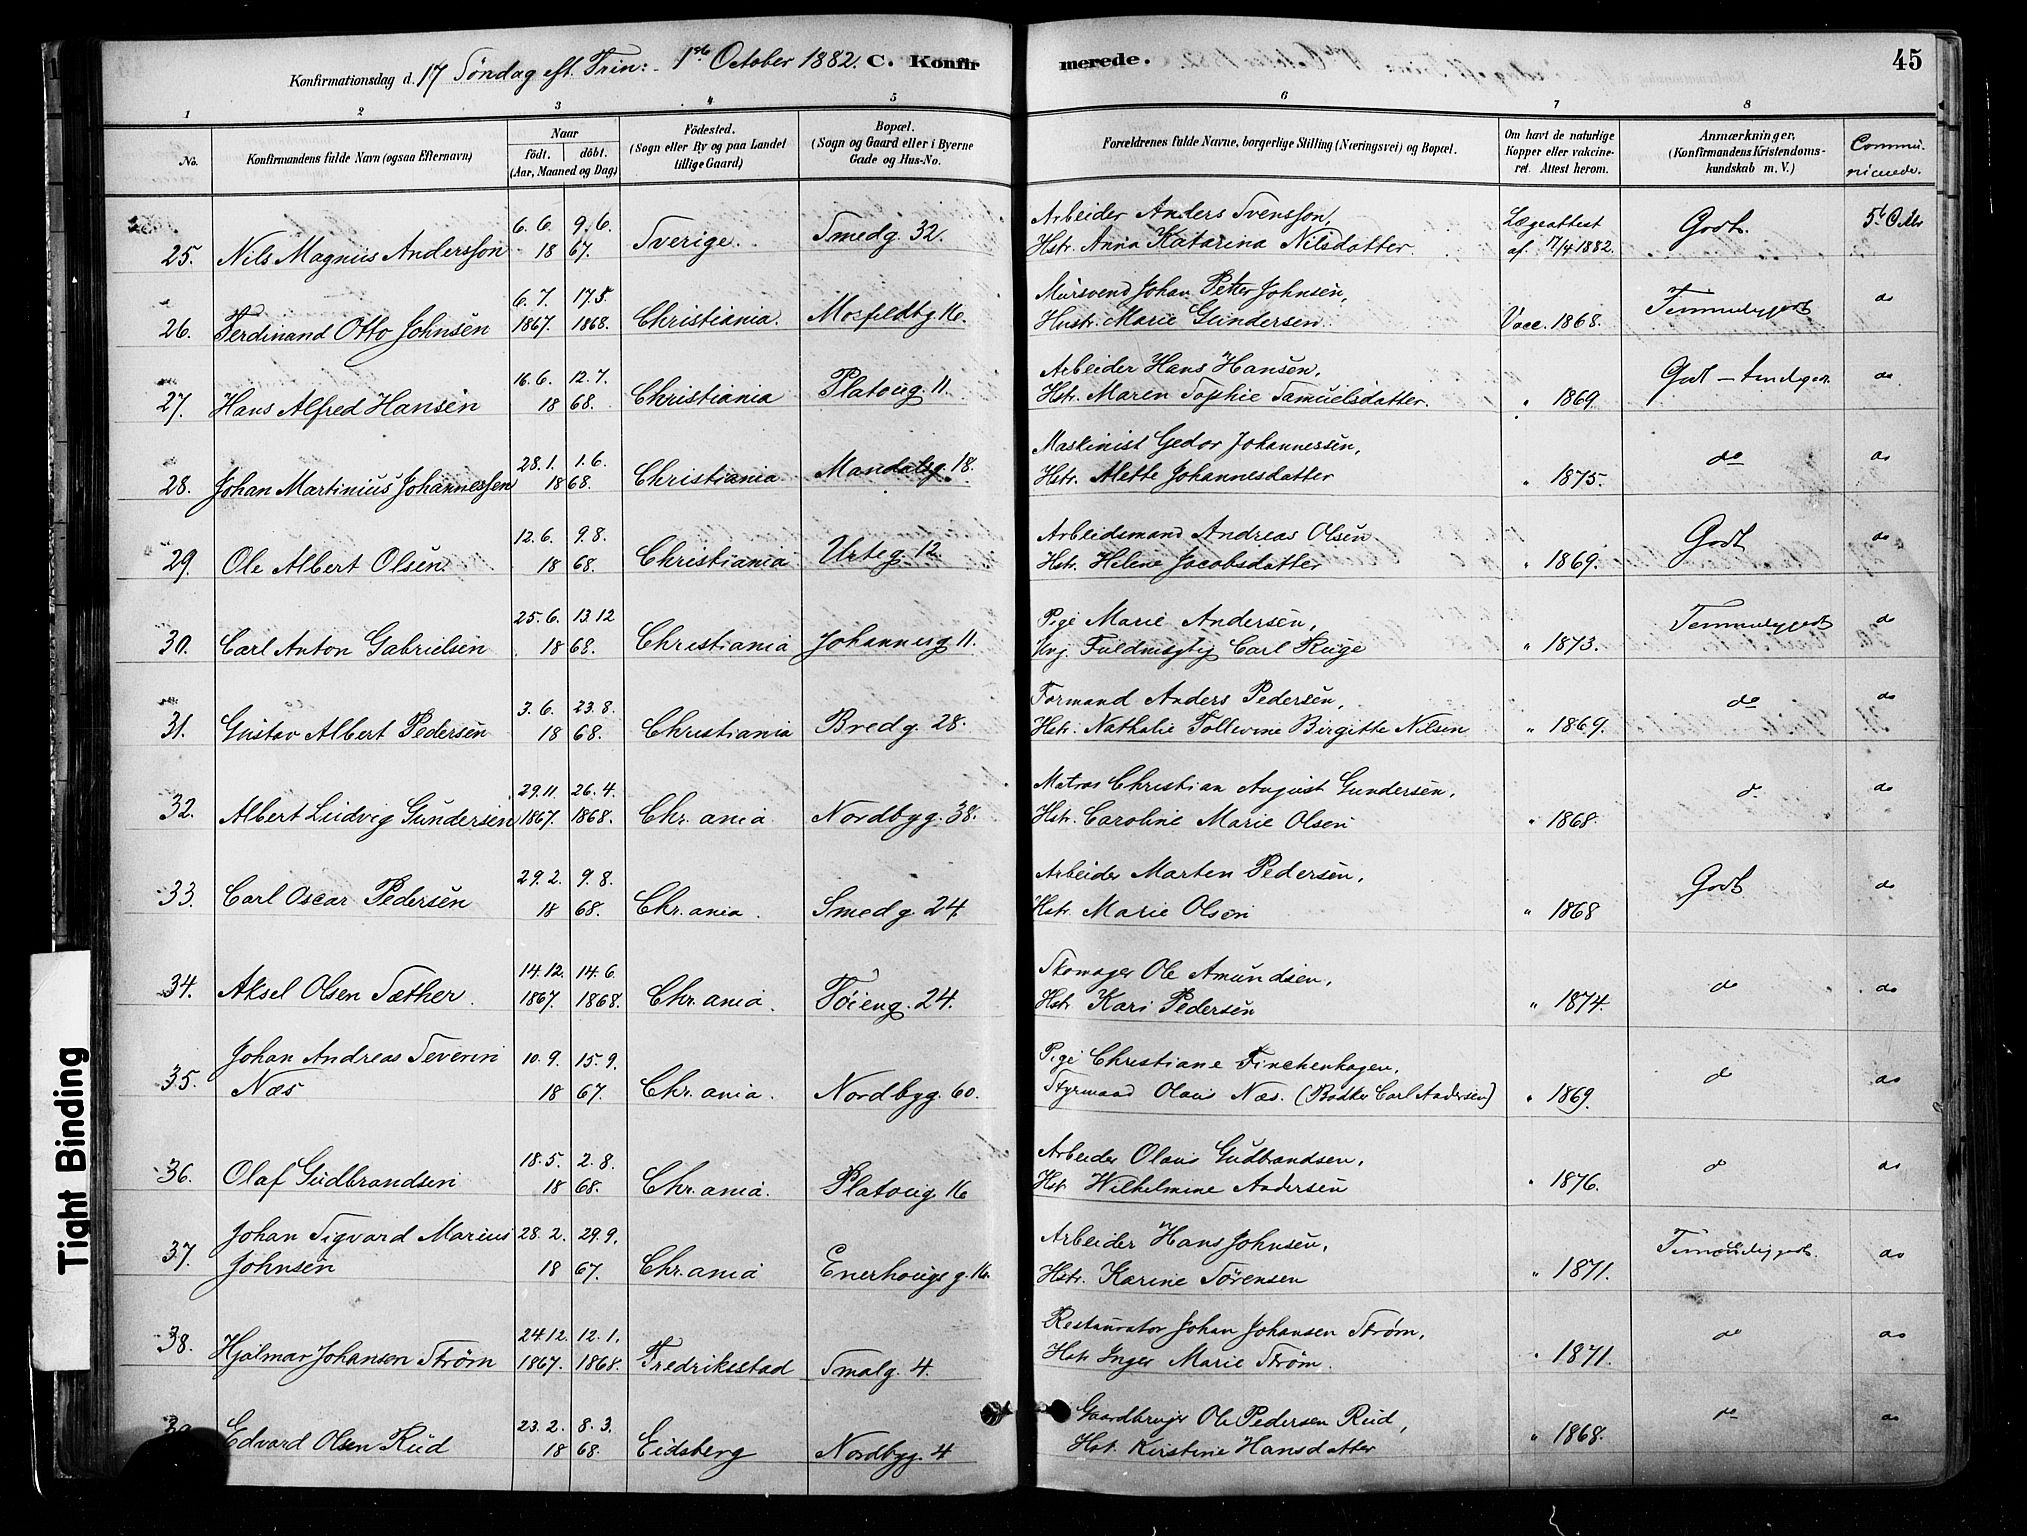 Konfirmationsdag d. 17 Söndag eft. Trin: 1ste October 1882. C. Konfirmerede. 45
1 2 3 4 5 6 7 8
No. Konfirmandens fulde Navn (ogsaa Efternavn) Naar födt. döbt. (Aar, Maaned og Dag) Födested. (Sogn eller By og paa Landet tillige Gaard) Bopæl. (Sogn og Gaard eller i Byerne Gade og Hus-No. Forældrenes fulde Navne, borgerlige Stilling (Næringsvei) og Bopæl. Om havt de naturlige Kopper eller vakcineret. Attest herom. Anmærkninger, (Konfirmandens Kristendomskundskab m. V.) Communicerede.
6.6. 9.6. Arbeider Anders Svensson, Lægeattest
25. Nils Magnus Andersson 18 67. Sverige. Smedg. 32. Hstr. Anna Katarina Nilsdatter. af 17/4 1882. Godt. 5t Octbr
6.7. 17.5. Mursvend Johan Petter Johnsen,
26. Ferdinand Otto Johnsen 1867. 1868. Christiania. Mosfeldtg. 16. Hustr. Marie Gundersen. Vacc. 1868. Temmeliggodt do
16.6. 12.7. Arbeider Hans Hansen,
27. Hans Alfred Hansen 18 68. Christiania Platoug. 11. Hstr. Maren Sophie Samuelsdatter. " 1869. Godt do
28.1. 1.6. Maskinist Gedor Johannessen,
28. Johan Martinius Johannessen 18 68. Christiania Mandalsg. 18. Hstr. Alette Johannesdatter " 1875. do do
12.6. 9.8. Arbeidsmand Andreas Olsen
29. Ole Albert Olsen 18 68. Christiania Urteg. 12. Hstr. Helene Jacobsdatter " 1869. Godt do
25.6. 13.12 Pige Marie Andersen,
30. Carl Anton Gabrielsen 18 68. Christiania Johannesg 11. Ung. Fuldmægtig Carl Ruge " 1873. Temmeliggodt do
3.6. 23.8. Formand Anders Pedersen,
31. Gustav Albert Pedersen 18 68. Christiania Bredg. 28. Hstr. Nathalie Birgitte Nilsen " 1869. do do
29.11. 26.4. Matros Christian August Gundersen,
32. Albert Ludvig Gundersen 1867. 1868. Chr.ania. Nordbyg. 38. Hstr. Caroline Marie Olsen " 1868. do do
29.2. 9.8. Arbeider Marten Pedersen,
33. Carl Oscar Pedersen 18 68. Chr.ania. Smedg. 24. Hstr. Marie Olsen " 1868 Godt do
14.12. 14.6 Skomager Ole Amundsen,
34. Aksel Olsen Sæther. 1867. 1868. Chr.ania. Töieng. 24. Hstr. Kari Pedersen " 1874. do do
Johan Andreas Severin 10.9. 15.9. Pige Christiane Finckenhagen,
35. Næs 18 67. Chr.ania. Nordbyg. 60. Styrmand Olaus Næs. (Bödker Carl Andersen) " 1869. do do
18.5. 2.8. Arbeider Olaus Gudbrandsen,
36. Olaf Gudbrandsen 18 68. Chr.ania. Platoug. 16 Hst. Wilhelmine Andersen " 1876. do do
Johan Sigvard Marius 28.2. 29.9. Arbeider Hans Johnsen,
37. Johnsen 18 67. Chr.ania Enerhougs g. 16. Hstr. Karine Sörensen " 1871. Temmeliggodt. do
24.12. 12.1. Restauratør Johan Johansen Strøm,
38. Hjalmar Johansen Strøm 1867. 1868. Fredriksstad Smalg. 4. Hstr Inger Marie Strøm. " 1871. do do
23.2. 8.3. Gaardbruger Ole Pedersen Rud,
39. Edvard Olsen Rud 18 68. Eidsberg Nordbyg. 4 Hst. Kirstine Hansdatter " 1868. do do
Tight Binding